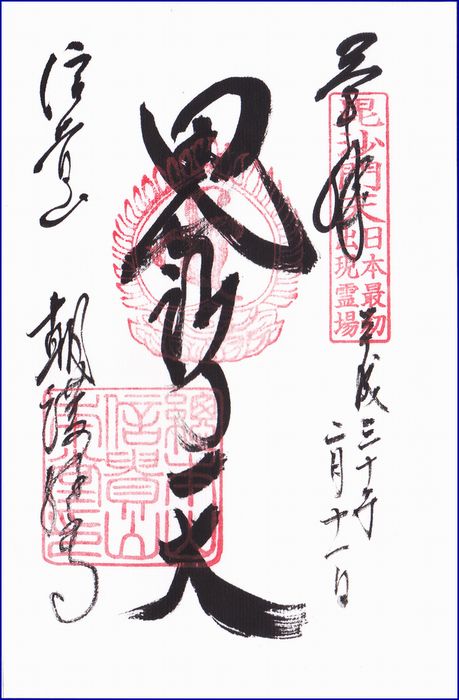 奉拝
毘沙門天日本最初
出現霊場
平成三十年
二月十一日
毘沙門天
信貴山
朝護孫子寺